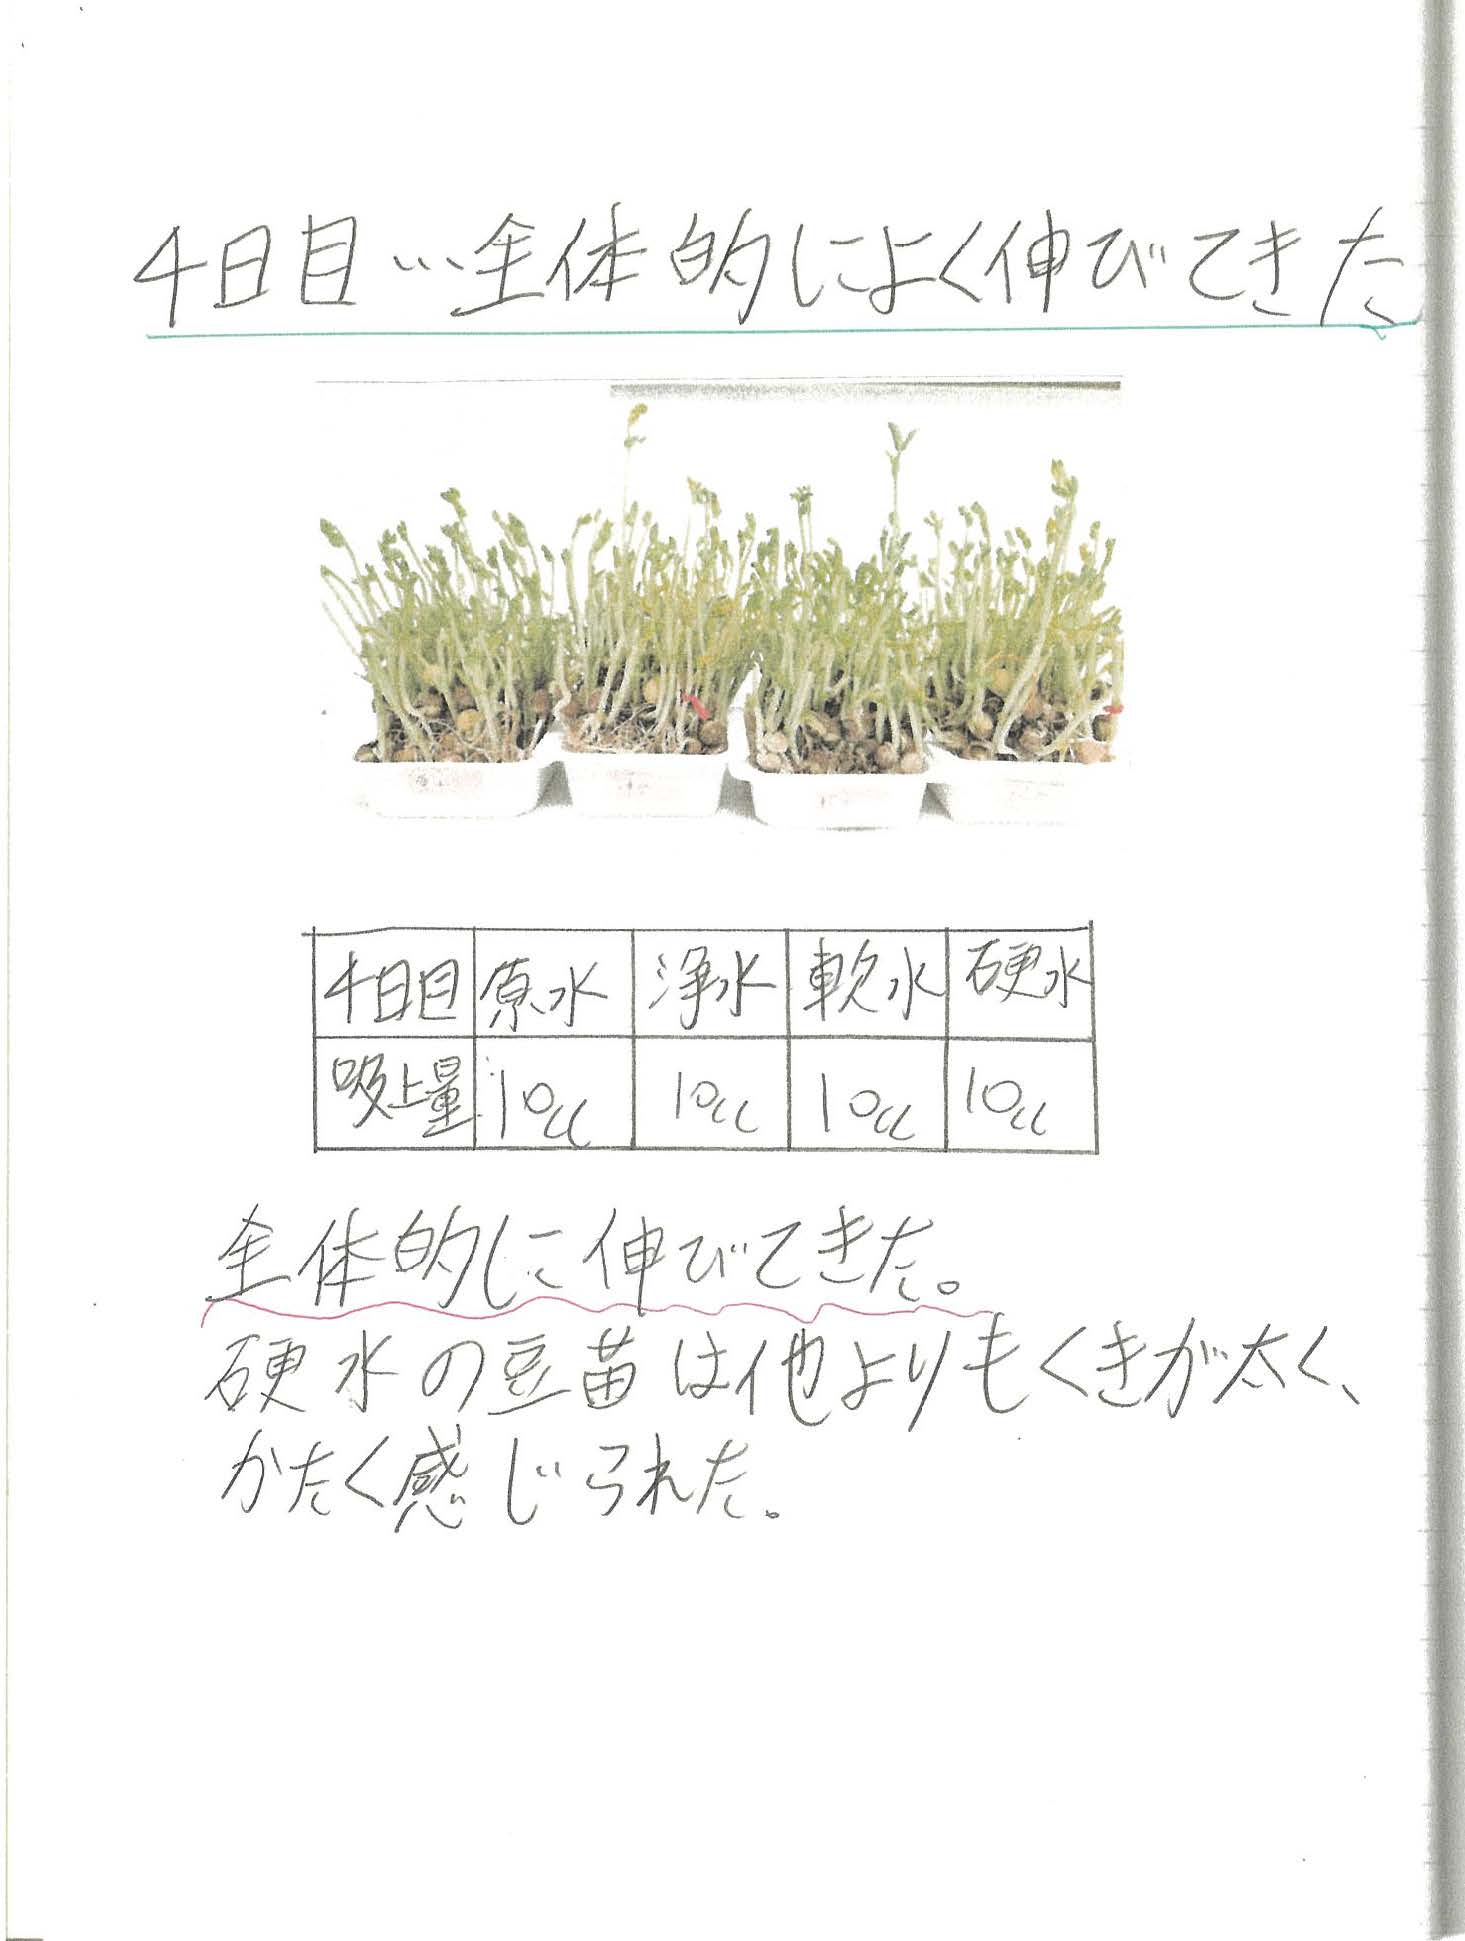 4日目…全体的によく伸びてきた
4日目 原水 浄水 軟水 硬水
吸上量 10cc 10cc 10cc 10cc
全体的に伸びてきた。
硬水の豆苗は他よりもくきが太く、
かたく感じられた。